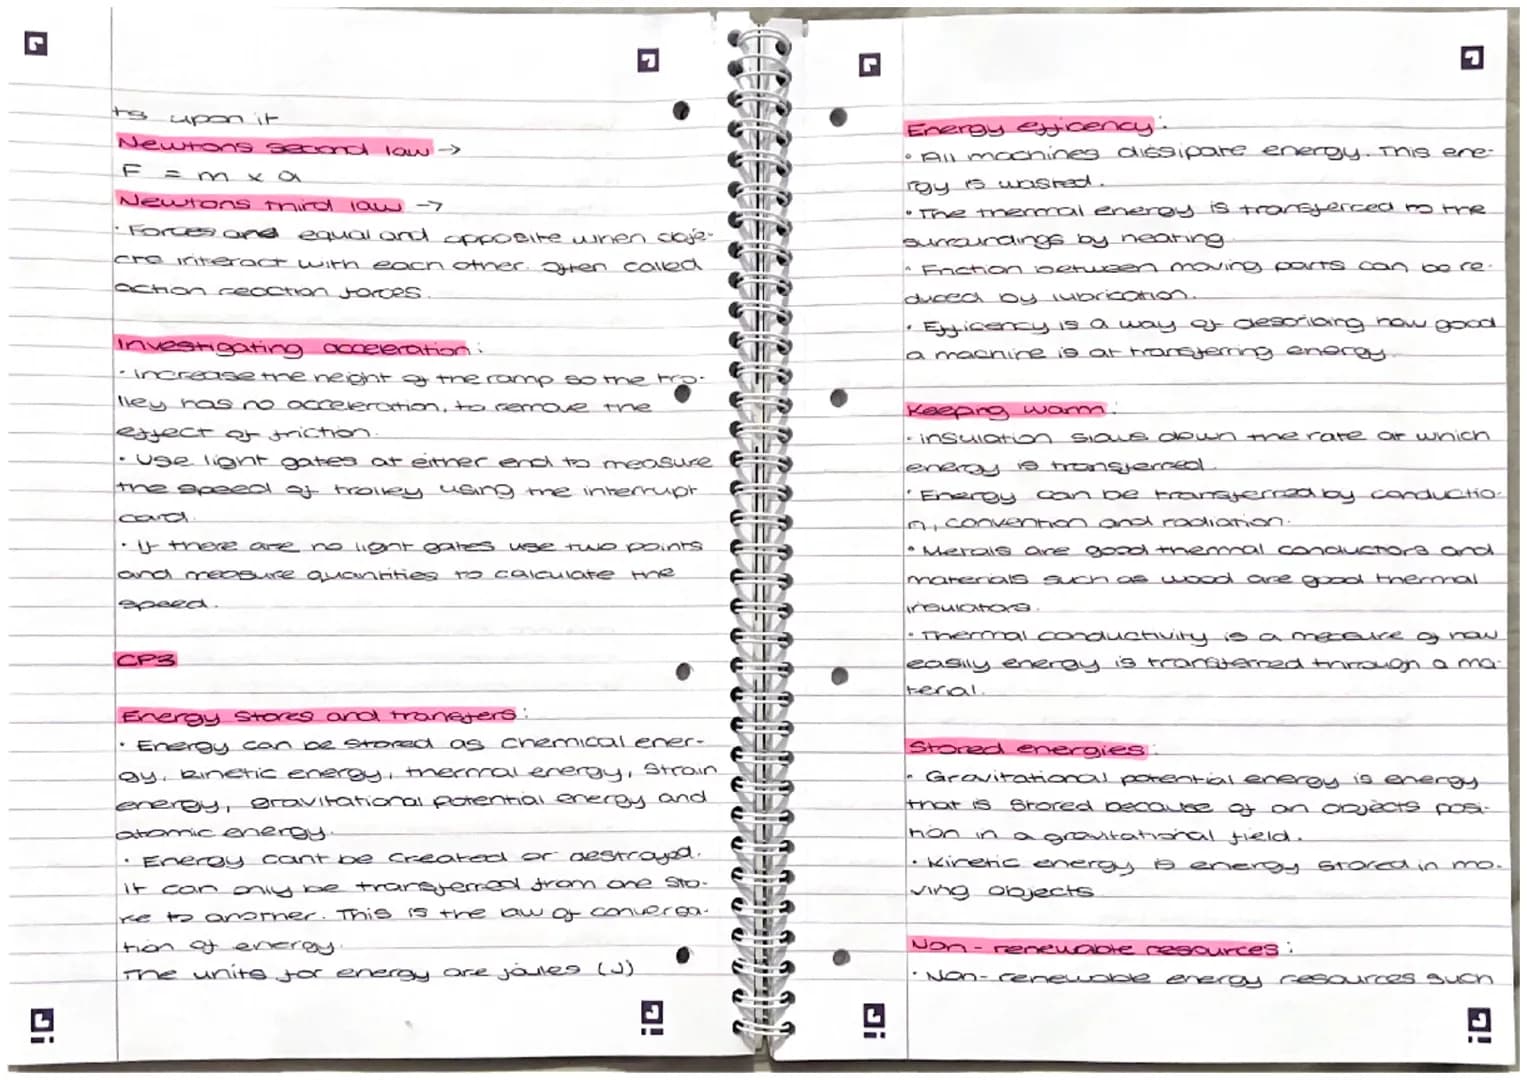 ts upon it
Newtons second law →
F = m x a
Newtons third law →
· Forces and equal and opposite when obje-
cts interact with each other. Often called
action reaction forces.
Investigating acceleration:
· Increase the height of the ramp so the tro-
lley has no acceleration, to remove the
effect of friction.
· Use light gates at either end to measure
the speed of trolley using the interrupt
card.
· If there are no light gates use two points
and measure quantities to calculate the
speed.
CP3
Energy stores and transfers:
· Energy can be stored as chemical ener-
gy, kinetic energy, thermal energy, strain
energy, gravitational potential energy and
atomic energy.
· Energy cant be created or destroyed.
it can only be transferred from one sto-
re to another. This is the law of conversa-
tion of energy.
The units for energy are joules (J)
Energy efficency:
· All machines dissipate energy. This ene-
rgy is wasted.
· The thermal energy is transferred to the
surroundings by heating.
· Friction between moving parts can be re-
duced by lubrication.
· Efficency is a way of describing how good
a machine is at transferring energy.
Keeping warm:
· insulation slows down the rate at which
energy is transferred.
· Energy can be transferred by conductio-
n, convention and radiation.
· Metals are good thermal conductors and
materials such as wood are good thermal
insulators.
· Thermal conductivity is a measure of how
easily energy is transferred through a ma-
terial.
Stored energies:
· Gravitational potential energy is energy
that is stored because of an objects posi-
tion in a gravitational field.
· Kinetic energy is energy stored in mo-
ving objects
Non-renewable resources:
· Non-renewable energy resources such